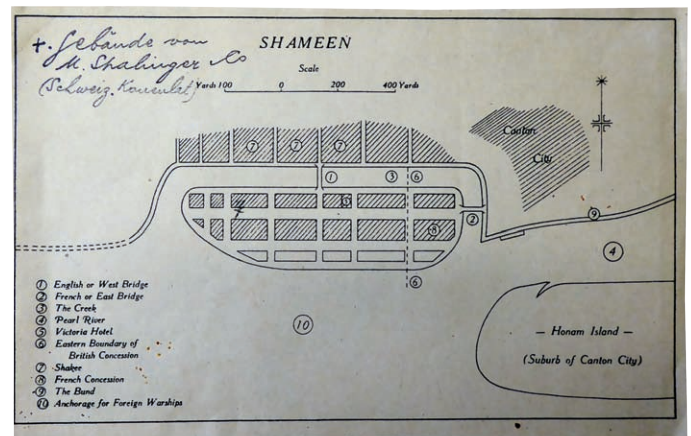 +. Gebäude von
M. Shalinger & Co
(Schweiz. Konsulat)
SHAMEEN
Scale
Yards 100 0 200 400 Yards
Canton
City
7 7 7
1 3 6
5
2
9
8
4
6
10
— Honam Island —
(Suburb of Canton City)
1 English or West Bridge
2 French or East Bridge
3 The Creek
4 Pearl River
5 Victoria Hotel
6 Eastern Boundary of
British Concession
7 Shakee
8 French Concession
9 The Bund
10 Anchorage for Foreign Warships